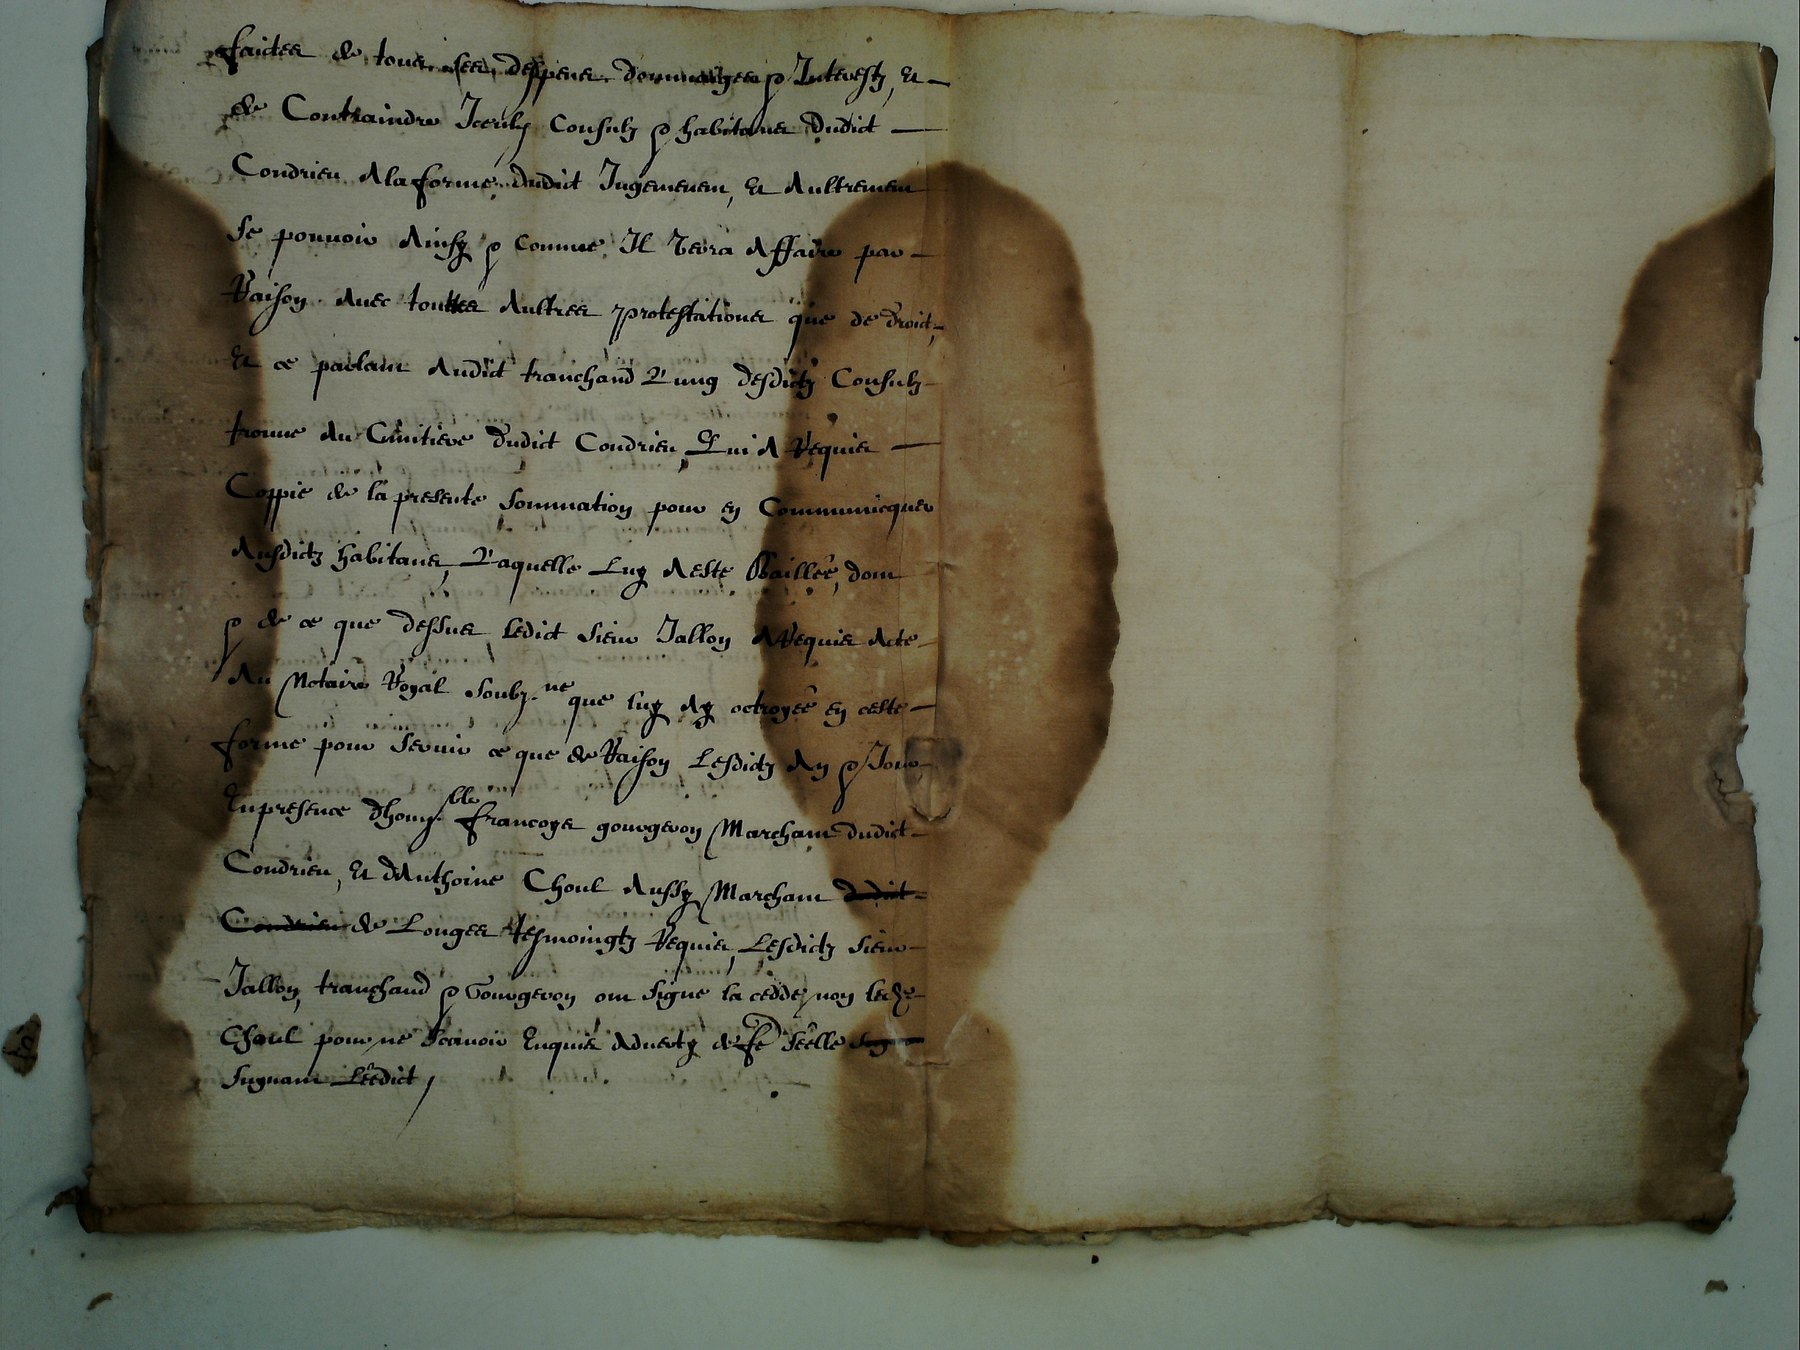 faictes de tous ses despens dommages & Interestz, Et
de Contraindre Iceulx Consulz & habitans dudict
Condrieu A la forme dudict Jugement, Et Aultrement
se pouvoir Ainsy & comme Il verra Affaire par
Raison Avec touttes Aultres protestations que de droict,
Et ce parlant Audict tranchand L'ung desdictz Consulz
trouve Au Cimitiere dudict Condrieu, Qui A Requis
Coppie de la presente sommation pour en Communicquer
Ausdictz habitans, Laquelle Luy A este Baillée, dont
& de ce que dessus ledict sieur Jallon A Requis Acte
Au Notaire Royal soubz.ne que luy Ay octroyée en ceste
forme pour servir ce que de Raison Lesdictz An & Jour
En presence dhon.ble francoys gourgeron Marchant dudict
Condrieu, Et dAnthoine Choul Aussy Marchant dudict
Condrieu de Longes tesmoingtz Requis, Lesdictz sieur
Jallon, tranchand & Gourgeron ont signe la cedde, non led.
Choul pour ne scavoir Enquis Adverty de scelle
suyvant Leedict